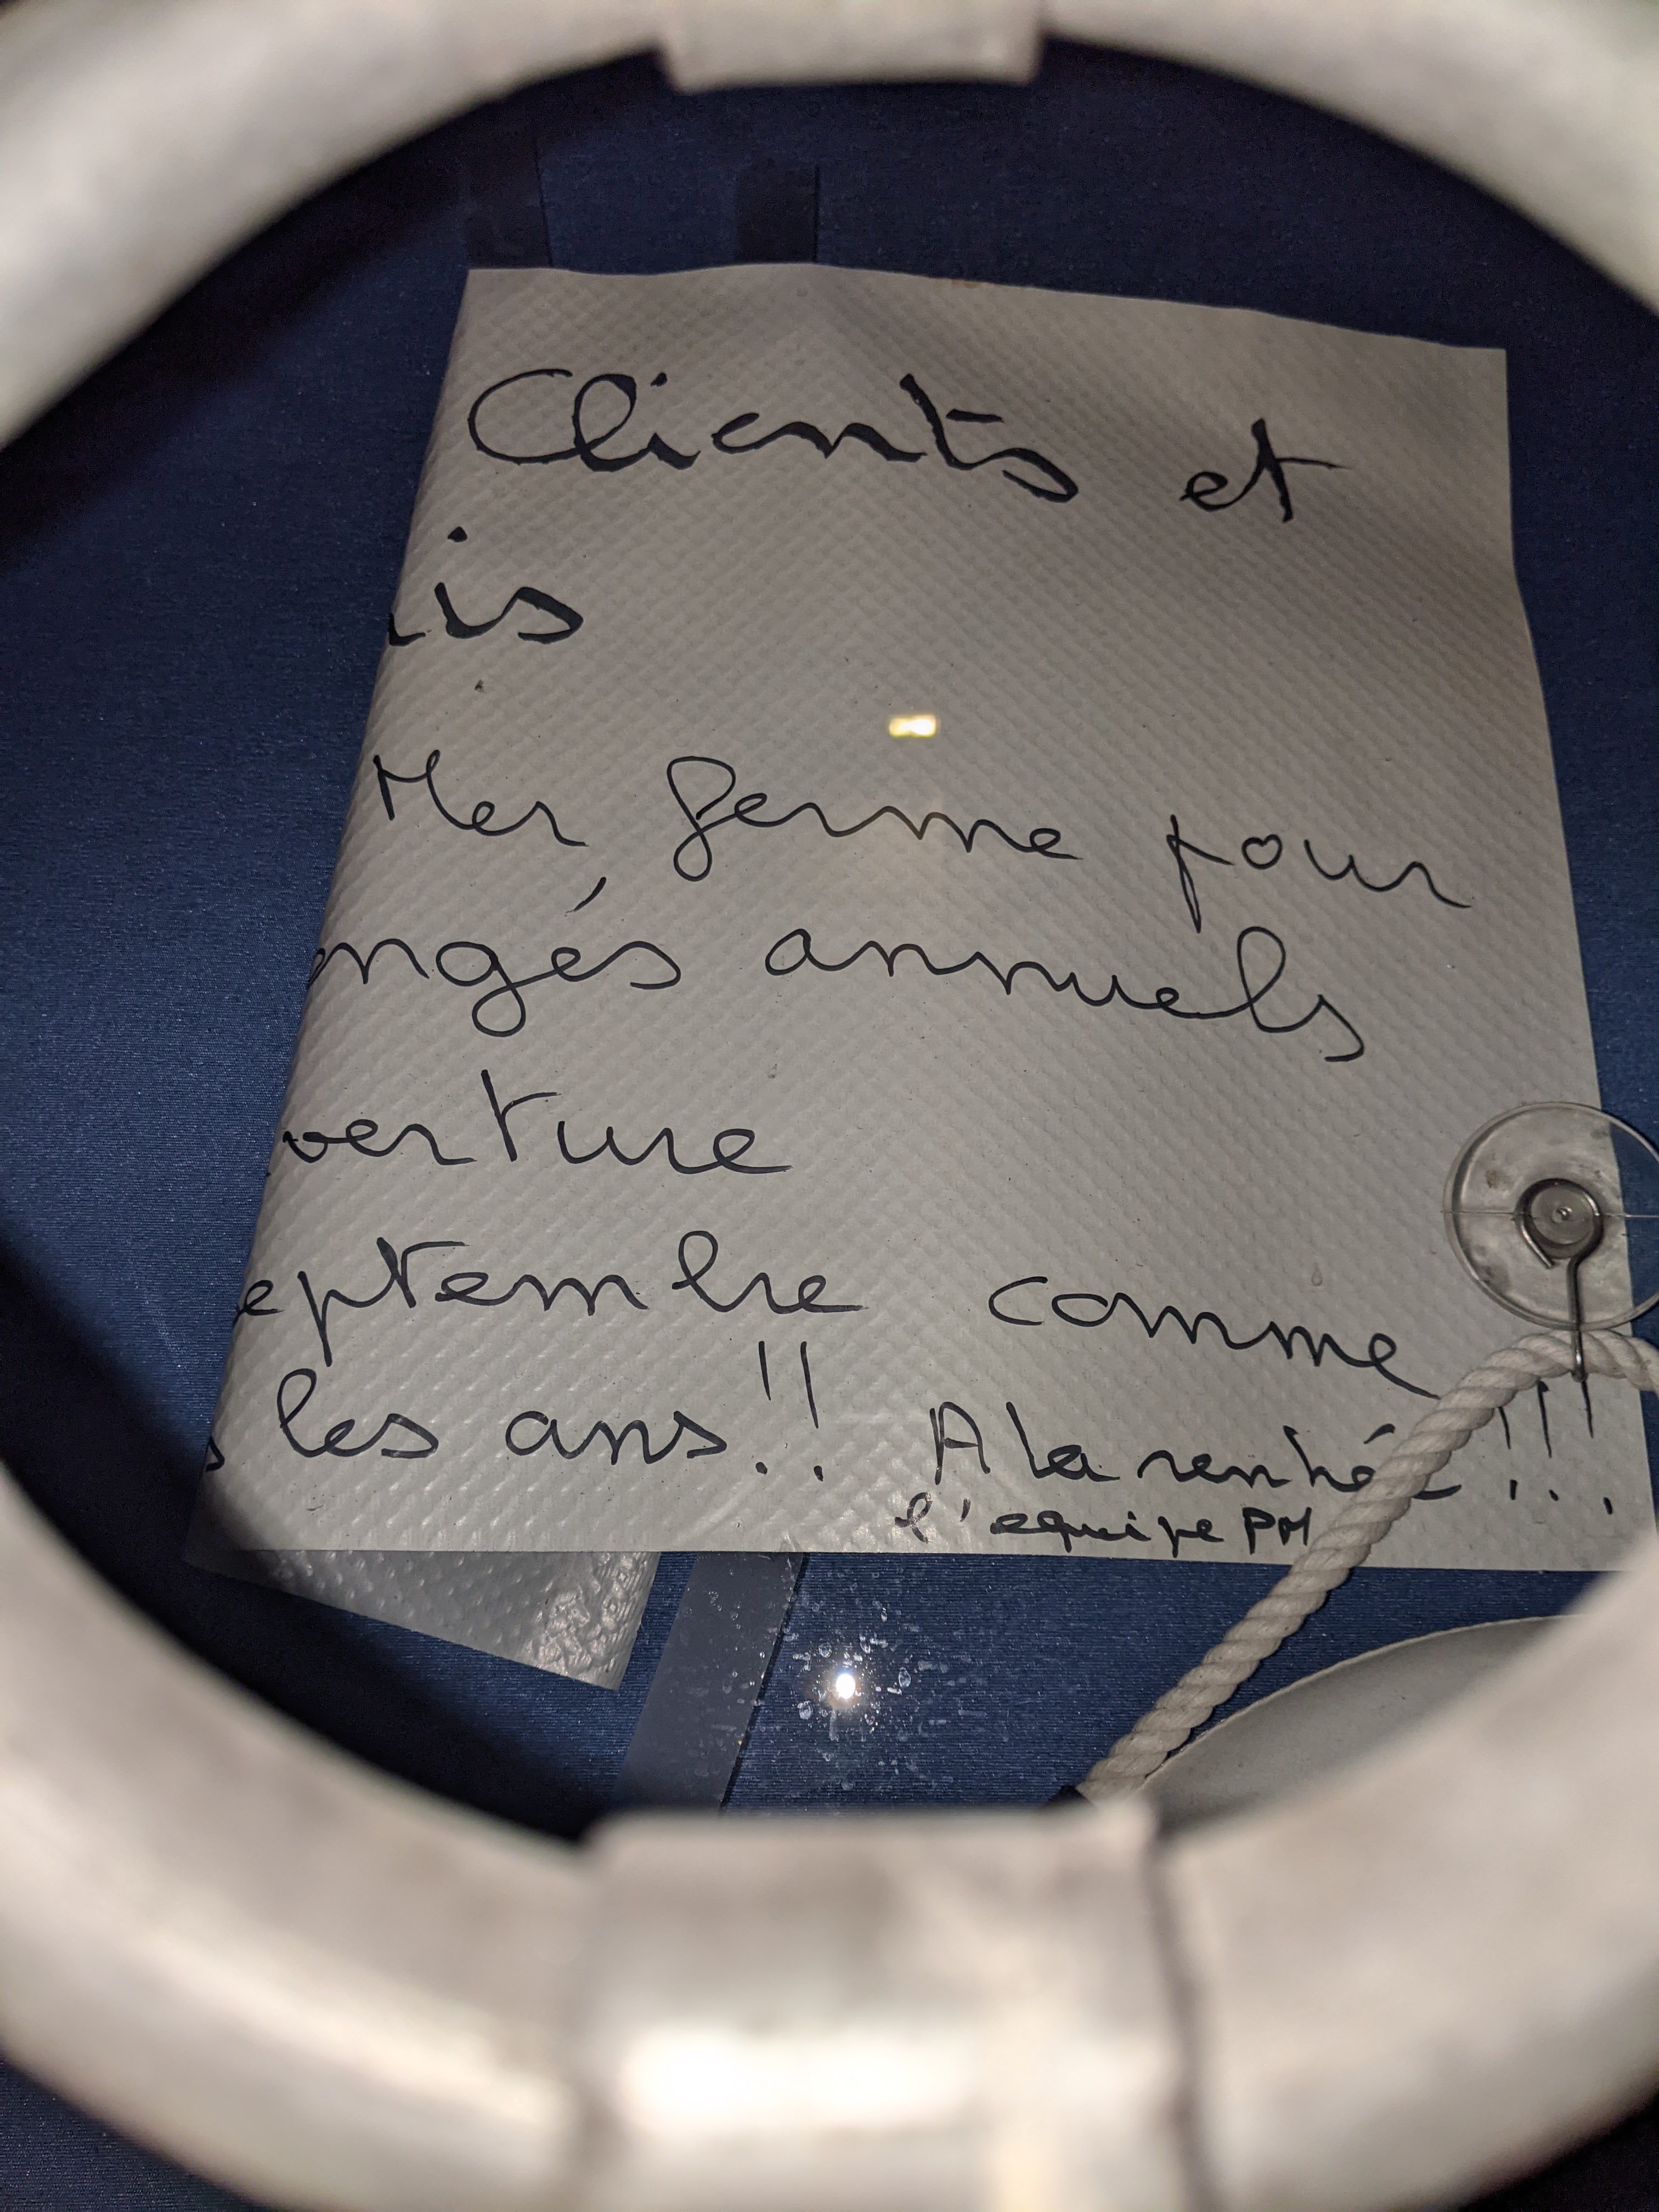 Clients et
is
Mer ferme pour
ongés annuels
verture
eptembre comme
s les ans!!
A la rentrée !!!
l'equipe PM